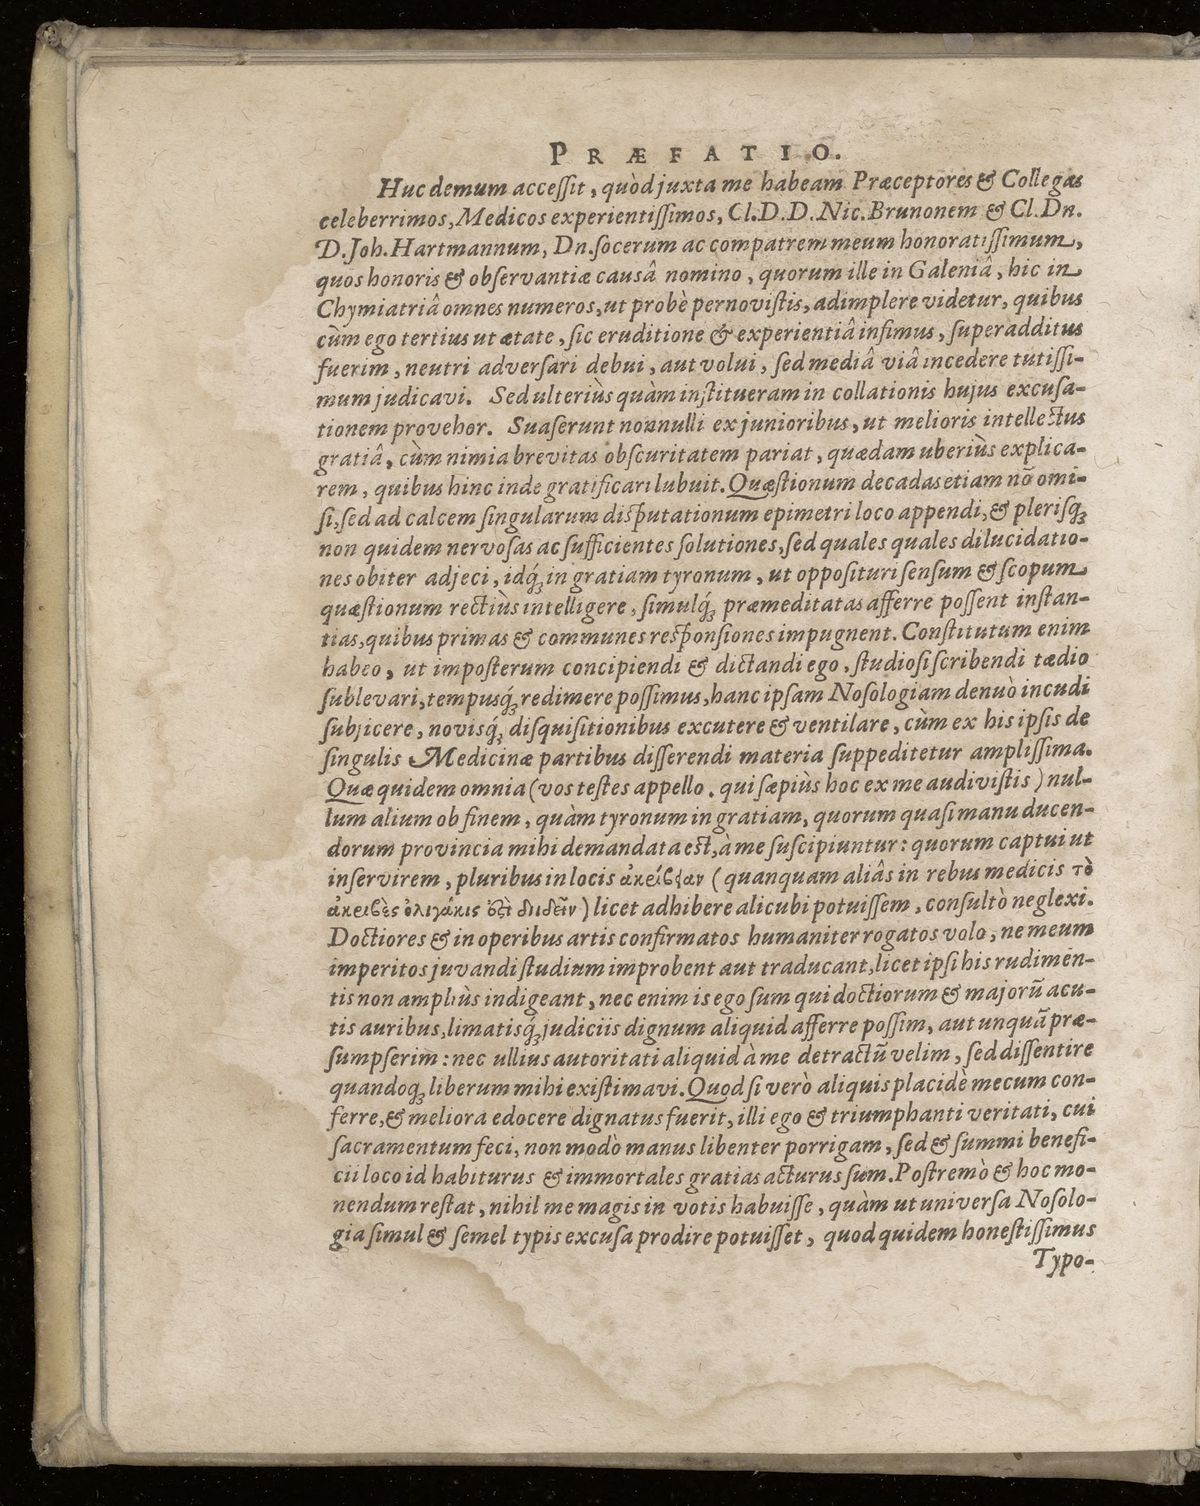 PRÆFATIO.
Huc demum accessit, quòd juxta me habeam Præceptores & Collegas
celeberrimos, Medicos experientissimos, Cl. D. D. Nic. Brunonem & Cl. Dn.
D. Joh. Hartmannum, Dn. socerum ac compatrem meum honoratissimum,
quos honoris & observantiæ causâ nomino, quorum ille in Galeniâ, hic in
Chymiatriâ omnes numeros, ut probè pernovistis, adimplere videtur, quibus
cùm ego tertius ut ætate, sic eruditione & experientiâ infimus, superadditus
fuerim, neutri adversari debui, aut volui, sed mediâ viâ incedere tutissi-
mum judicavi. Sed ulteriùs quàm institueram in collationis hujus excusa-
tionem provehor. Suaserunt nonnulli ex junioribus, ut melioris intellectus
gratiâ, cùm nimia brevitas obscuritatem pariat, quædam uberiùs explica-
rem, quibus hinc inde gratificari lubuit. Quæstionum decadas etiam nō omi-
si, sed ad calcem singularum disputationum epimetri loco appendi, & plerisq́ꝫ
non quidem nervosas ac sufficientes solutiones, sed quales quales dilucidatio-
nes obiter adjeci, idq́ꝫ in gratiam tyronum, ut opposituri sensum & scopum
quæstionum rectiùs intelligere, simulq́ꝫ præmeditatas afferre possent instan-
tias, quibus primas & communes responsiones impugnent. Constitutum enim
habeo, ut imposterum concipiendi & dictandi ego, studiosi scribendi tædio
sublevari, tempusq́ꝫ redimere possimus, hanc ipsam Nosologiam denuò incudi
subjicere, novisq́ꝫ disquisitionibus excutere & ventilare, cùm ex his ipsis de
singulis Medicinæ partibus disserendi materia suppeditetur amplissima.
Quæ quidem omnia (vos testes appello, qui sæpiùs hoc ex me audivistis) nul-
lum alium ob finem, quàm tyronum in gratiam, quorum quasi manu ducen-
dorum provincia mihi demandata est, à me suscipiuntur: quorum captui ut
inservirem, pluribus in locis ἀκρίβειαν (quanquam aliâs in rebus medicis τὸ
ἀκριβὲς ὀλιγάκις ἐςὶ ἰδεῖν) licet adhibere alicubi potuissem, consultò neglexi.
Doctiores & in operibus artis confirmatos humaniter rogatos volo, ne meum
imperitos juvandi studium improbent aut traducant, licet ipsi his rudimen-
tis non ampliùs indigeant, nec enim is ego sum qui doctiorum & majorū acu-
tis auribus, limatisq́ꝫ judiciis dignum aliquid afferre possim, aut unquā præ-
sumpserim: nec ullius autoritati aliquid à me detractū velim, sed dissentire
quandoqꝫ liberum mihi existimavi. Quod si verò aliquis placidè mecum con-
ferre, & meliora edocere dignatus fuerit, illi ego & triumphanti veritati, cui
sacramentum feci, non modò manus libenter porrigam, sed & summi benefi-
cii loco id habiturus & immortales gratias acturus sum. Postremò & hoc mo-
nendum restat, nihil me magis in votis habuisse, quàm ut universa Nosolo-
gia simul & semel typis excusa prodire potuisset, quod quidem honestissimus
Typo-